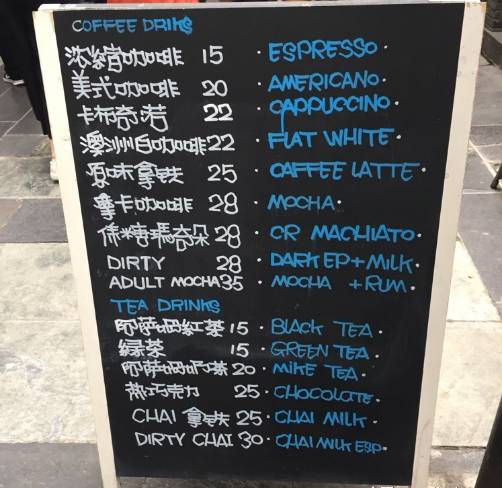 COFFEE DRIKS
浓缩咖啡 15 · ESPRESSO ·
美式咖啡 20 · AMERICANO
卡布奇诺 22 · CAPPUCCINO ·
澳洲白咖啡 22 · FLAT WHITE ·
原味拿铁 25 · CAFFEE LATTE ·
拿卡咖啡 28 · MOCHA ·
焦糖瑪奇朵 28 · CR MACHIATO ·
DIRTY 28 · DARK EP + MILK ·
ADULT MOCHA 35 · MOCHA + RUM ·
TEA DRINKS
阿萨姆紅茶 15 · BLACK TEA ·
绿茶 15 · GREEN TEA ·
阿萨姆奶茶 20 · MIKE TEA ·
热巧克力 25 · CHOCOLATE ·
CHAI 拿铁 25 · CHAI MILK ·
DIRTY CHAI 30 · CHAI MILK ESP ·